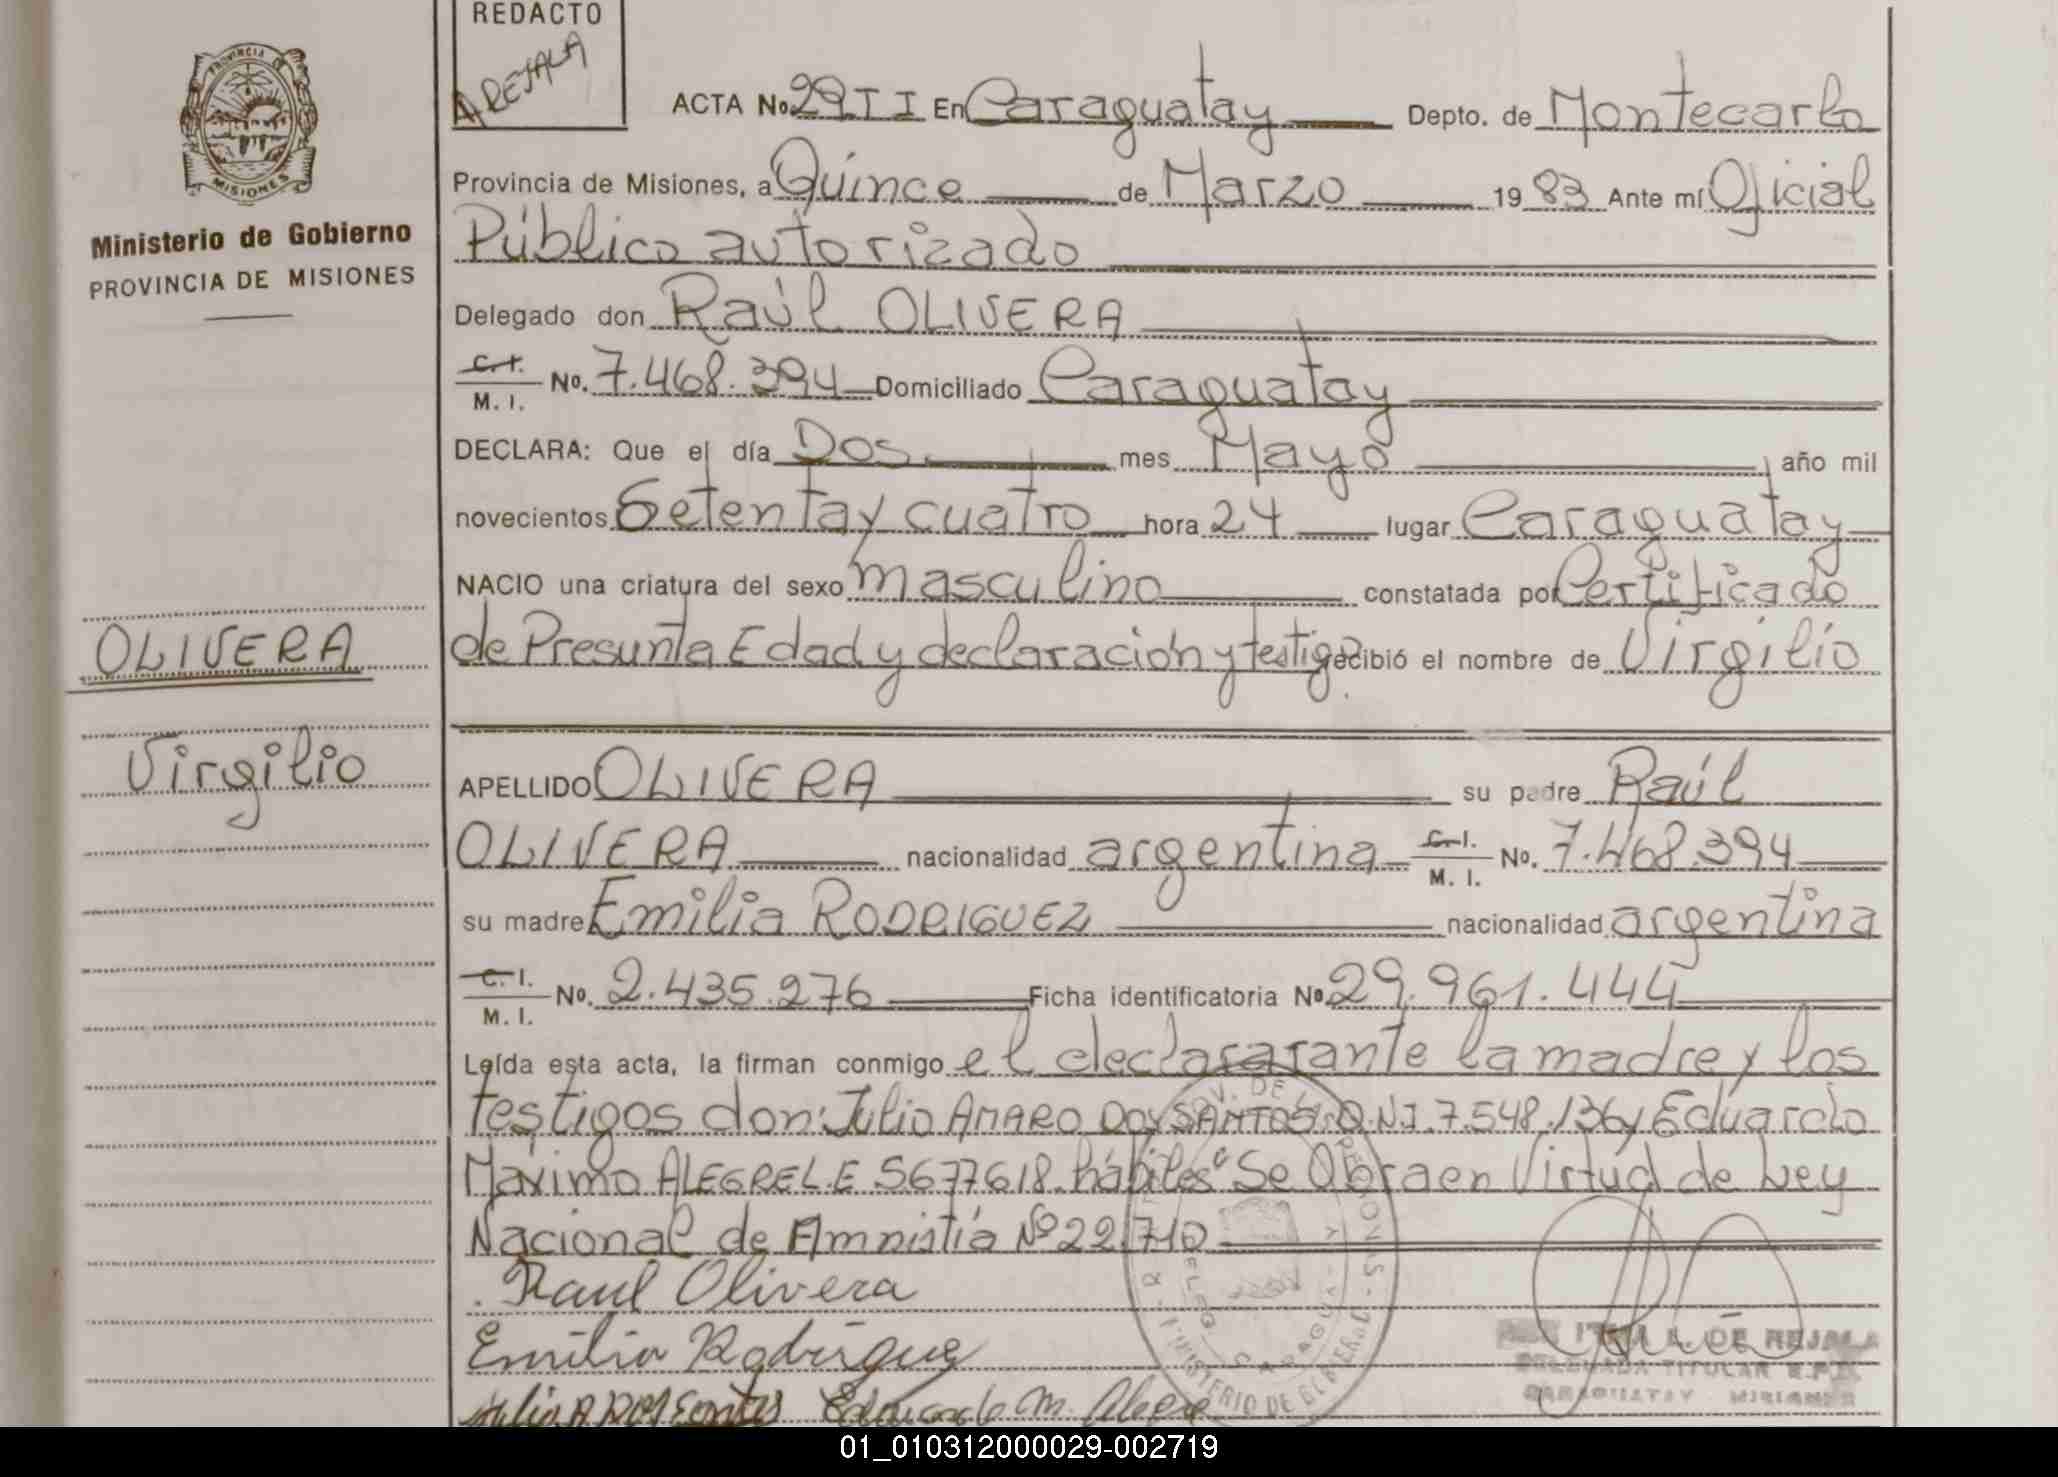 REDACTO
AREJALA
PROVINCIA DE
MISIONES
Ministerio de Gobierno
PROVINCIA DE MISIONES
OLIVERA
Virgilio
ACTA No. 29 T I En Caraguatay Depto. de Montecarlo
Provincia de Misiones, a Quince de Marzo 19 83 Ante mí Oficial
Público autorizado
Delegado don Raúl OLIVERA
C.I. M.I. No. 7.468.394 Domiciliado Caraguatay
DECLARA: Que el día Dos mes Mayo año mil
novecientos Setenta y cuatro hora 24 lugar Caraguatay
NACIO una criatura del sexo masculino constatada por Certificado
de Presunta Edad y declaración y testigo recibió el nombre de Virgilio
APELLIDO OLIVERA su padre Raúl
OLIVERA nacionalidad argentina C.I. M.I. No. 7.468.394
su madre Emilia RODRIGUEZ nacionalidad argentina
C.I. M.I. No. 2.435.276 Ficha identificatoria No. 29.961.444
Leída esta acta, la firman conmigo el declararante la madre y los
testigos don: Julio AMARO DOS SANTOS D.N.I. 7.548.136 y Eduardo
Máximo ALEGRE L.E 5677618. hábiles" Se Obra en Virtud de Ley
Nacional de Amnistía Nº 22.710
Raul Olivera
Emilia Rodrigue
Julio A Dos Santos Eduardo M. Alegre
L. DE REJALA
DELEGADA TITULAR R.P.
CARAGUATAY MISIONES
01_010312000029-002719